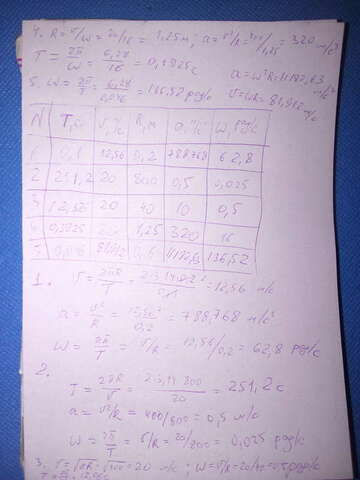 4. R = υ/W = 20/16 = 1,25 м; a = υ²/R = 400/1,25 = 320 м/с²
T = 2π/W = 6,28/16 = 0,3925 с a = W²R = 11182,63 м/с²
5. W = 2π/T = 6,28/0,046 = 136,52 рад/с υ = WR = 81,912 м/с
N T, c υ, м/с R, м a, м/с² W, рад/с
1 0,1 12,56 0,2 788,768 62,8
2 251,2 20 800 0,5 0,025
3 12,56 20 40 10 0,5
4 0,3925 20 1,25 320 16
5 0,046 81,912 0,6 11182,63 136,52
1. υ = 2πR/T = 2·3,14·0,2/0,1 = 12,56 м/с
a = υ²/R = 12,56²/0,2 = 788,768 м/с²
W = 2π/T = υ/R = 12,56/0,2 = 62,8 рад/с
2.
T = 2πR/υ = 2·3,14·800/20 = 251,2 с
a = υ²/R = 400/800 = 0,5 м/с
W = 2π/T = υ/R = 20/800 = 0,025 рад/с
3. υ = √aR = √400 = 20 м/с ; W = υ/R = 20/40 = 0,5 рад/с